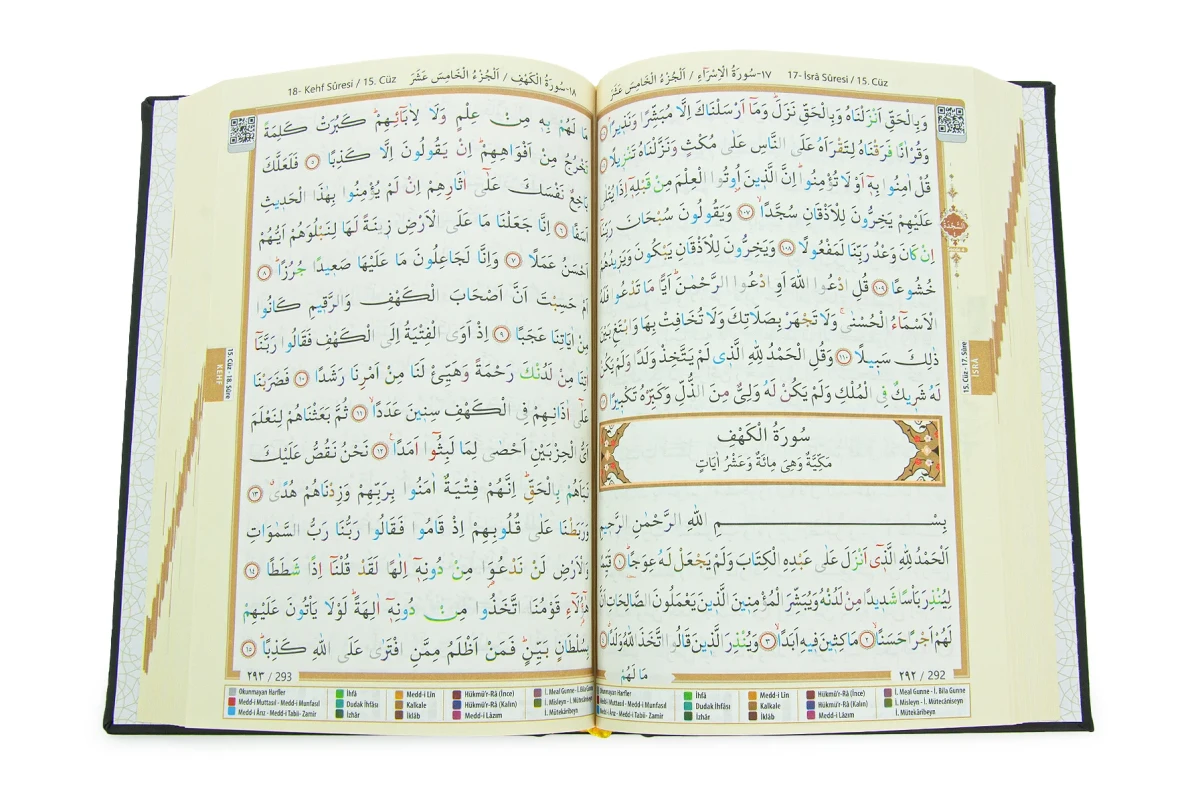 ١٧-سُورَةُ الْاِسْرَاءِ / اَلْجُزْءُ الْخَامِسَ عَشَرَ 17- İsrâ Sûresi / 15. Cüz
وَبِالْحَقِّ اَنْزَلْنَاهُ وَبِالْحَقِّ نَزَلَۜ وَمَٓا اَرْسَلْنَاكَ اِلَّا مُبَشِّرًا وَنَذٖيرًاۢ
وَقُرْاٰنًا فَرَقْنَاهُ لِتَقْرَاَهُ عَلَى النَّاسِ عَلٰى مُكْثٍ وَنَزَّلْنَاهُ تَنْزٖيلًا
قُلْ اٰمِنُوا بِهٖٓ اَوْ لَا تُؤْمِنُواۜ اِنَّ الَّذٖينَ اُو۫تُوا الْعِلْمَ مِنْ قَبْلِهٖٓ اِذَا يُتْلٰى
عَلَيْهِمْ يَخِرُّونَ لِلْاَذْقَانِ سُجَّدًاۙ ١٠٧ وَيَقُولُونَ سُبْحَانَ رَبِّنَٓا
اِنْ كَانَ وَعْدُ رَبِّنَا لَمَفْعُولًا ١٠٨ وَيَخِرُّونَ لِلْاَذْقَانِ يَبْكُونَ وَيَزٖيدُهُمْ
خُشُوعًا ١٠٩ قُلِ ادْعُوا اللّٰهَ اَوِ ادْعُوا الرَّحْمٰنَۜ اَيًّا مَا تَدْعُوا فَلَهُ
الْاَسْمَٓاءُ الْحُسْنٰىۚ وَلَا تَجْهَرْ بِصَلَاتِكَ وَلَا تُخَافِتْ بِهَا وَابْتَغِ بَيْنَ
ذٰلِكَ سَبٖيلًا ١١٠ وَقُلِ الْحَمْدُ لِلّٰهِ الَّذٖى لَمْ يَتَّخِذْ وَلَدًا وَلَمْ يَكُنْ
لَهُ شَرٖيكٌ فِى الْمُلْكِ وَلَمْ يَكُنْ لَهُ وَلِىٌّ مِنَ الذُّلِّ وَكَبِّرْهُ تَكْبٖيرًا
سُورَةُ الْكَهْفِ
مَكِّيَّةٌ وَهِىَ مِائَةٌ وَعَشْرُ اٰيَاتٍ
بِسْمِ اللّٰهِ الرَّحْمٰنِ الرَّحٖيمِ
اَلْحَمْدُ لِلّٰهِ الَّذٖٓى اَنْزَلَ عَلٰى عَبْدِهِ الْكِتَابَ وَلَمْ يَجْعَلْ لَهُ عِوَجًاۜ ١ قَيِّمًا
لِيُنْذِرَ بَاْسًا شَدٖيدًا مِنْ لَدُنْهُ وَيُبَشِّرَ الْمُؤْمِنٖينَ الَّذٖينَ يَعْمَلُونَ الصَّالِحَاتِ اَنَّ
لَهُمْ اَجْرًا حَسَنًاۙ ٢ مَاكِثٖينَ فٖيهِ اَبَدًاۙ ٣ وَيُنْذِرَ الَّذٖينَ قَالُوا اتَّخَذَ اللّٰهُ وَلَدًاۗ ٤
مَا لَهُمْ
٢٩٢ / 292
السَّجْدَة
15. Cüz - 17. Sûre
İSRÂ
Okunmayan Harfler
Medd-i Muttasıl - Medd-i Munfasıl
Medd-i Ârız - Medd-i Tabii- Zamir
İhfâ
Dudak İhfâsı
İzhâr
Medd-i Lin
Kalkale
İklâb
Hükmü'r-Râ (İnce)
Hükmü'r-Râ (Kalın)
Medd-i Lâzım
İ. Meal Gunne - İ. Bila Gunne
İ. Misleyn - İ. Mütecâniseyn
İ. Mütekâribeyn
18- Kehf Sûresi / 15. Cüz ١٨-سُورَةُ الْكَهْفِ / اَلْجُزْءُ الْخَامِسَ عَشَرَ
مَا لَهُمْ بِهٖ مِنْ عِلْمٍ وَلَا لِاٰبَٓائِهِمْۜ كَبُرَتْ كَلِمَةً
تَخْرُجُ مِنْ اَفْوَاهِهِمْۜ اِنْ يَقُولُونَ اِلَّا كَذِبًا ٥ فَلَعَلَّكَ
بَاخِعٌ نَفْسَكَ عَلٰٓى اٰثَارِهِمْ اِنْ لَمْ يُؤْمِنُوا بِهٰذَا الْحَدٖيثِ
اَسَفًا ٦ اِنَّا جَعَلْنَا مَا عَلَى الْاَرْضِ زٖينَةً لَهَا لِنَبْلُوَهُمْ اَيُّهُمْ
اَحْسَنُ عَمَلًا ٧ وَاِنَّا لَجَاعِلُونَ مَا عَلَيْهَا صَعٖيدًا جُرُزًاۜ ٨
اَمْ حَسِبْتَ اَنَّ اَصْحَابَ الْكَهْفِ وَالرَّقٖيمِ كَانُوا
مِنْ اٰيَاتِنَا عَجَبًا ٩ اِذْ اَوَى الْفِتْيَةُ اِلَى الْكَهْفِ فَقَالُوا رَبَّنَٓا
اٰتِنَا مِنْ لَدُنْكَ رَحْمَةً وَهَيِّئْ لَنَا مِنْ اَمْرِنَا رَشَدًا ١٠ فَضَرَبْنَا
عَلٰٓى اٰذَانِهِمْ فِى الْكَهْفِ سِنٖينَ عَدَدًاۙ ١١ ثُمَّ بَعَثْنَاهُمْ لِنَعْلَمَ
اَىُّ الْحِزْبَيْنِ اَحْصٰى لِمَا لَبِثُٓوا اَمَدًا۟ ١٢ نَحْنُ نَقُصُّ عَلَيْكَ
نَبَاَهُمْ بِالْحَقِّۜ اِنَّهُمْ فِتْيَةٌ اٰمَنُوا بِرَبِّهِمْ وَزِدْنَاهُمْ هُدًىۗ ١٣
وَرَبَطْنَا عَلٰى قُلُوبِهِمْ اِذْ قَامُوا فَقَالُوا رَبُّنَا رَبُّ السَّمٰوَاتِ
وَالْاَرْضِ لَنْ نَدْعُوَ۬ا مِنْ دُونِهٖٓ اِلٰهًا لَقَدْ قُلْنَٓا اِذًا شَطَطًا ١٤
هٰٓؤُ۬لَٓاءِ قَوْمُنَا اتَّخَذُوا مِنْ دُونِهٖٓ اٰلِهَةًۜ لَوْلَا يَاْتُونَ عَلَيْهِمْ
بِسُلْطَانٍ بَيِّنٍۜ فَمَنْ اَظْلَمُ مِمَّنِ افْتَرٰى عَلَى اللّٰهِ كَذِبًاۜ ١٥
٢٩٣ / 293
15. Cüz - 18. Sûre
KEHF
Okunmayan Harfler
Medd-i Muttasıl - Medd-i Munfasıl
Medd-i Ârız - Medd-i Tabii- Zamir
İhfâ
Dudak İhfâsı
İzhâr
Medd-i Lîn
Kalkale
İklâb
Hükmü'r-Râ (İnce)
Hükmü'r-Râ (Kalın)
Medd-i Lâzım
İ. Meal Gunne - İ. Bila Gunne
İ. Misleyn - İ. Mütecâniseyn
İ. Mütekâribeyn